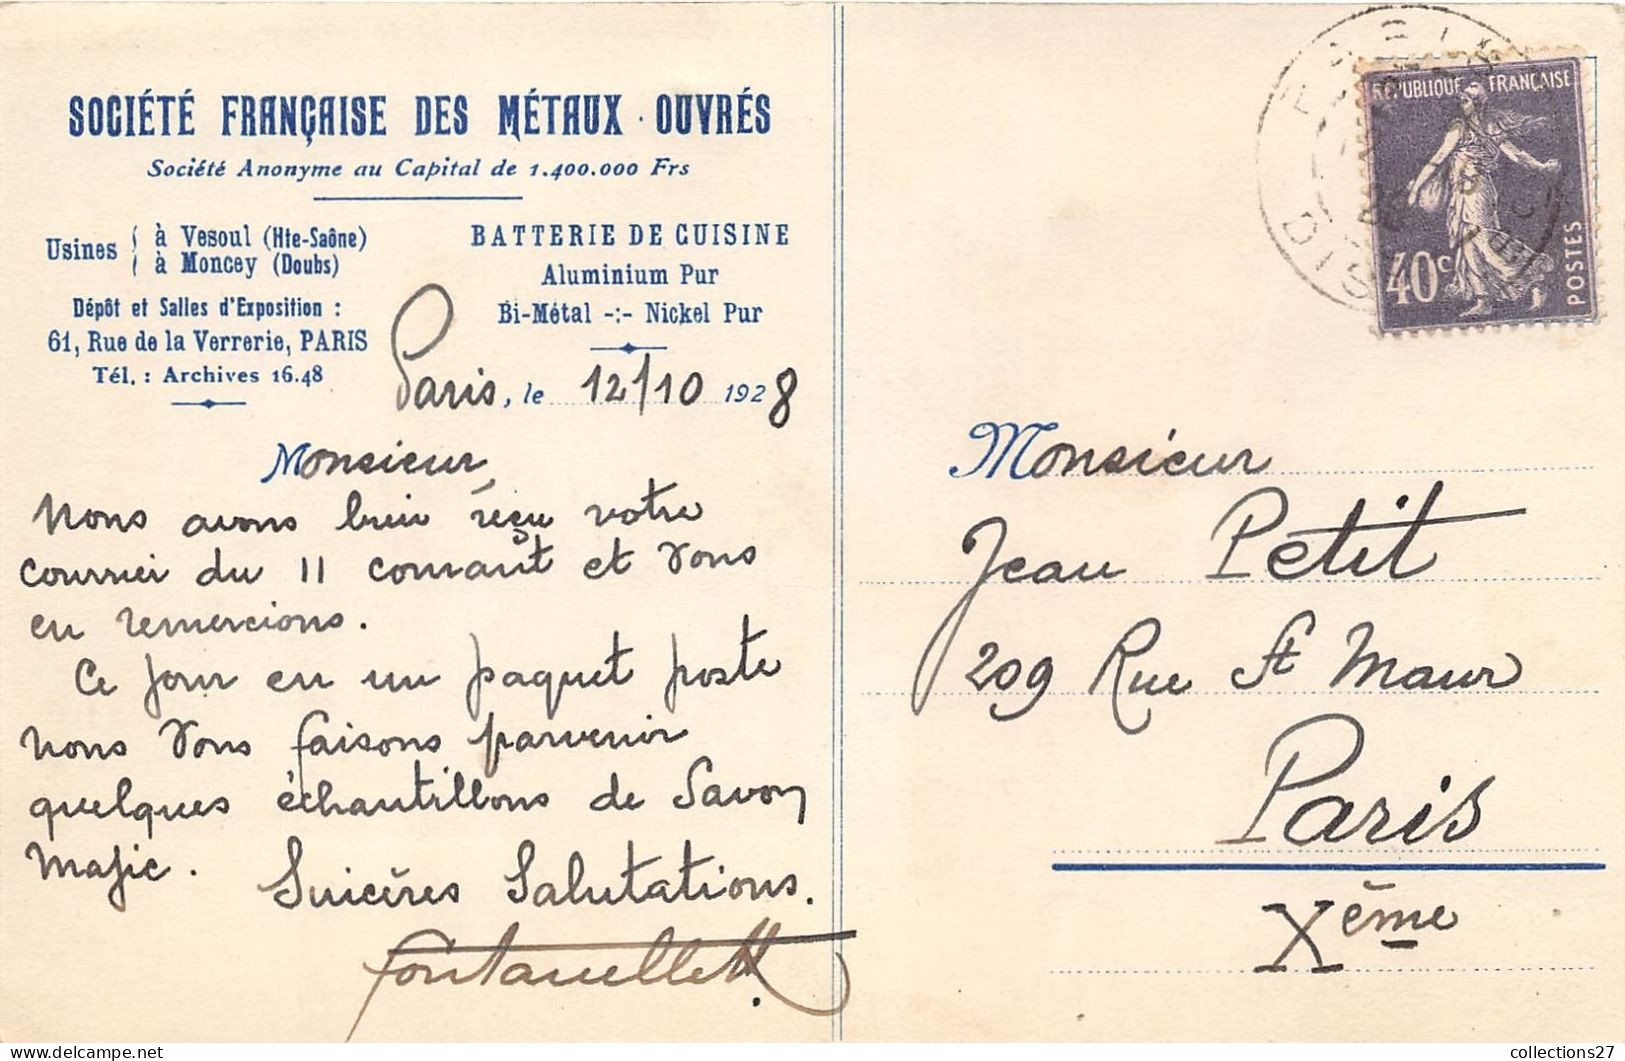 SOCIÉTÉ FRANÇAISE DES MÉTAUX OUVRÉS
Société Anonyme au Capital de 1.400.000 Frs
Usines à Vesoul (Hte-Saône)
à Moncey (Doubs)
Dépôt et Salles d'Exposition :
61, Rue de la Verrerie, PARIS
Tél. : Archives 16.48
BATTERIE DE CUISINE
Aluminium Pur
Bi-Métal -:- Nickel Pur
Paris, le 12/10 1928
Monsieur,
Nous avons bien reçu votre
courrier du 11 courant et vous
en remercions.
Ce jour en un paquet poste
nous vous faisons parvenir
quelques échantillons de Savon
Majic.
Sincères Salutations.
RÉPUBLIQUE FRANÇAISE
40c
POSTES
Monsieur
Jean Petit
209 Rue St Maur
Paris
Xème
collections27